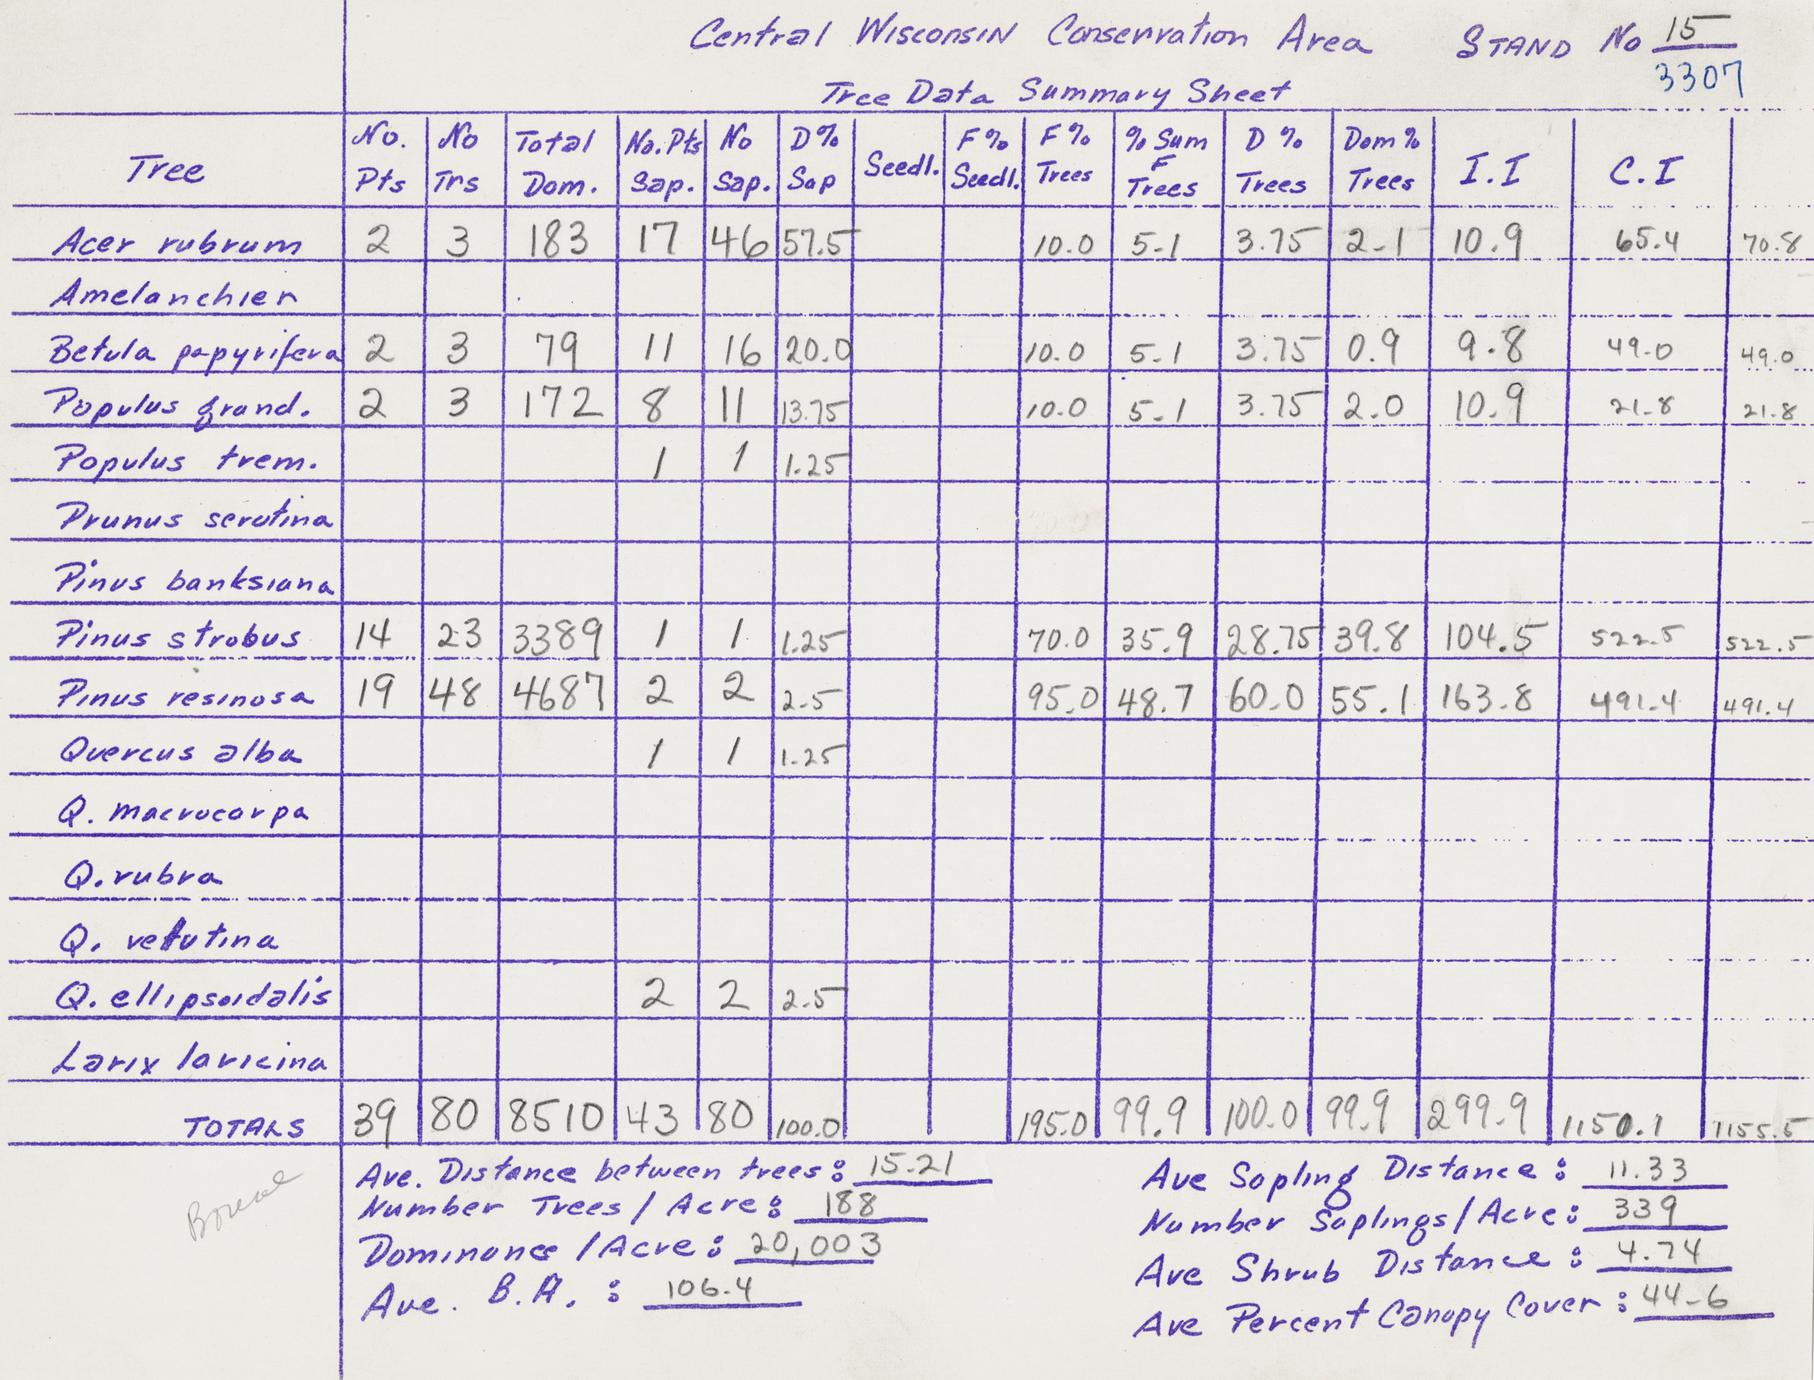 Central Wisconsin Conservation Area STAND No 15
3307
Tree Data Summary Sheet
Tree No. Pts No Trs Total Dom. No. Pts Sap. No Sap. D% Sap Seedl. F% Seedl. F% Trees % Sum F Trees D % Trees Dom % Trees I.I C.I
Acer rubrum 2 3 183 17 46 57.5 10.0 5.1 3.75 2.1 10.9 65.4 70.8
Amelanchier
Betula papyrifera 2 3 79 11 16 20.0 10.0 5.1 3.75 0.9 9.8 49.0 49.0
Populus grand. 2 3 172 8 11 13.75 10.0 5.1 3.75 2.0 10.9 21.8 21.8
Populus trem. 1 1 1.25
Prunus serotina
Pinus banksiana
Pinus strobus 14 23 3389 1 1 1.25 70.0 35.9 28.75 39.8 104.5 522.5 522.5
Pinus resinosa 19 48 4687 2 2 2.5 95.0 48.7 60.0 55.1 163.8 491.4 491.4
Quercus alba 1 1 1.25
Q. macrocarpa
Q. rubra
Q. velutina
Q. ellipsoidalis 2 2 2.5
Larix laricina
TOTALS 39 80 8510 43 80 100.0 195.0 99.9 100.0 99.9 299.9 1150.1 1155.5
Ave. Distance between trees: 15.21
Number Trees / Acre: 188
Dominance / Acre: 20,003
Ave. B.A. : 106.4
Ave Sapling Distance: 11.33
Number Saplings / Acre: 339
Ave Shrub Distance: 4.74
Ave Percent Canopy Cover: 44.6